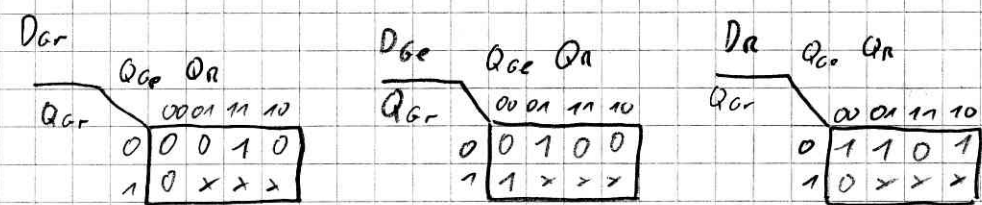 D_Gr
Q_Ge Q_R
Q_Gr 00 01 11 10
0 0 0 1 0
1 0 x x x
D_Ge
Q_Ge Q_R
Q_Gr 00 01 11 10
0 0 1 0 0
1 1 x x x
D_R
Q_Ge Q_R
Q_Gr 00 01 11 10
0 1 1 0 1
1 0 x x x